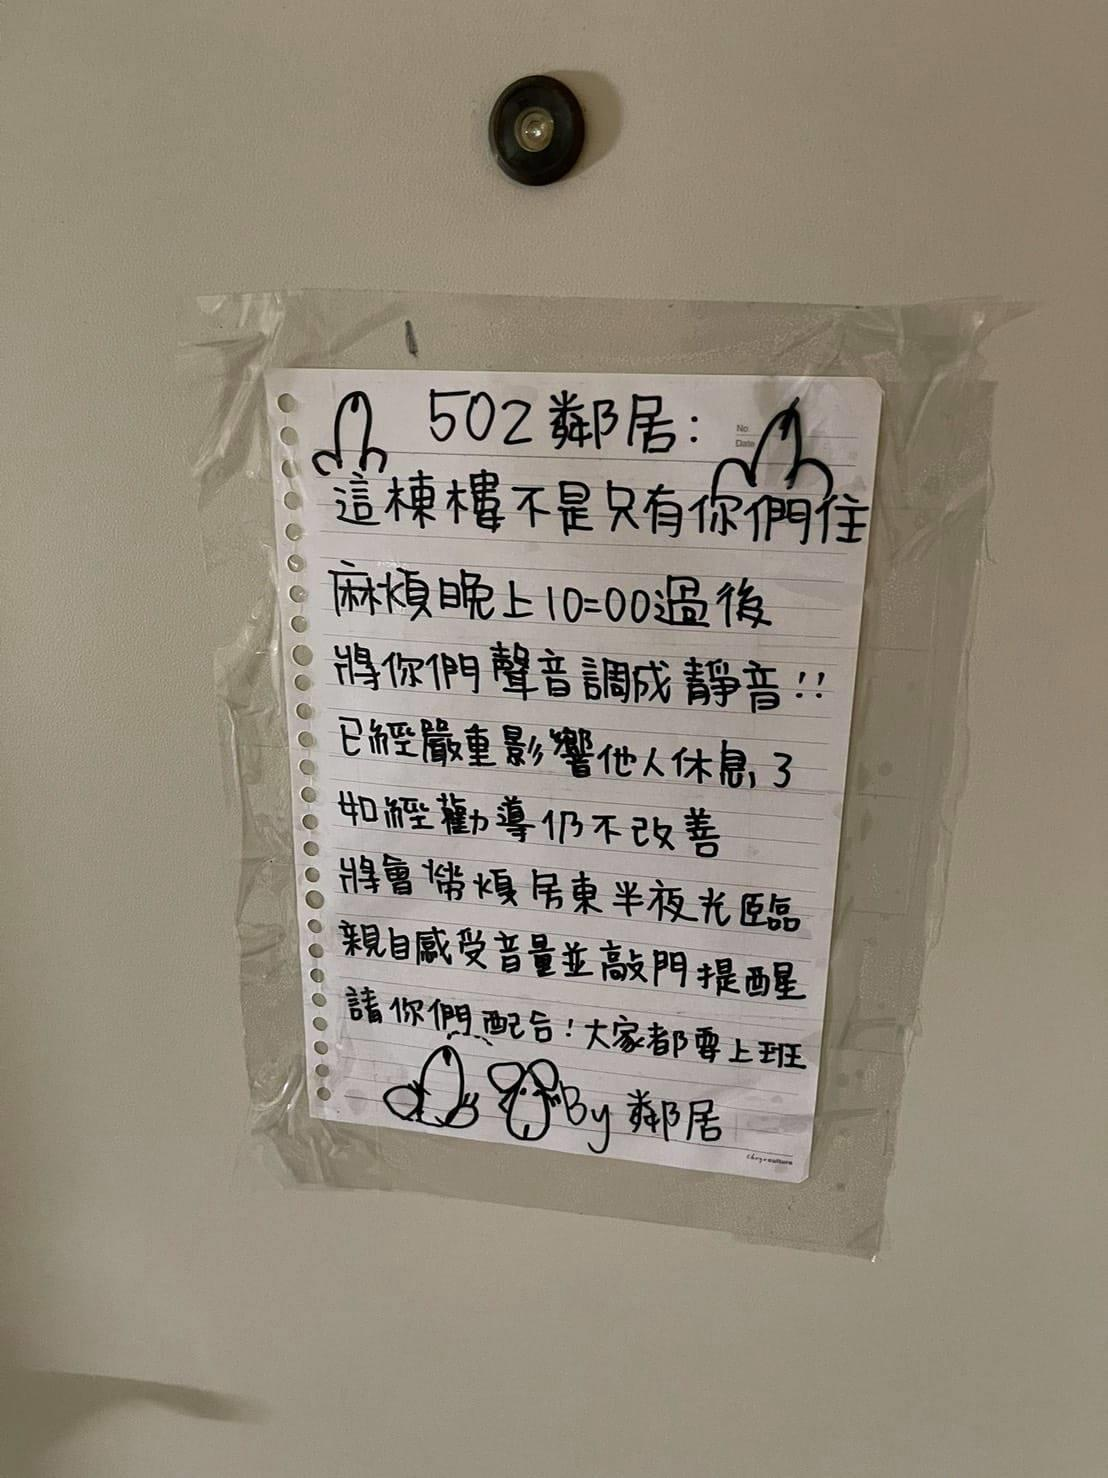 502 鄰居:
No.
Date
這棟樓不是只有你們住
麻煩晚上10:00過後
將你們聲音調成靜音!!
已經嚴重影響他人休息了
如經勸導仍不改善
將會勞煩房東半夜光臨
親自感受音量並敲門提醒
請你們配合!大家都要上班
By 鄰居